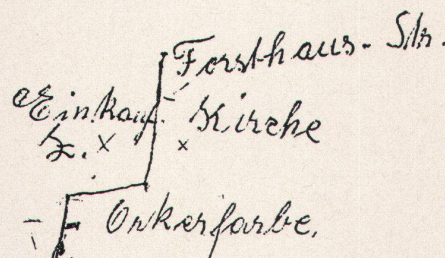 Forsthaus-Str.
Einkauf.
Z. x
x Kirche
Orkerfarbe.